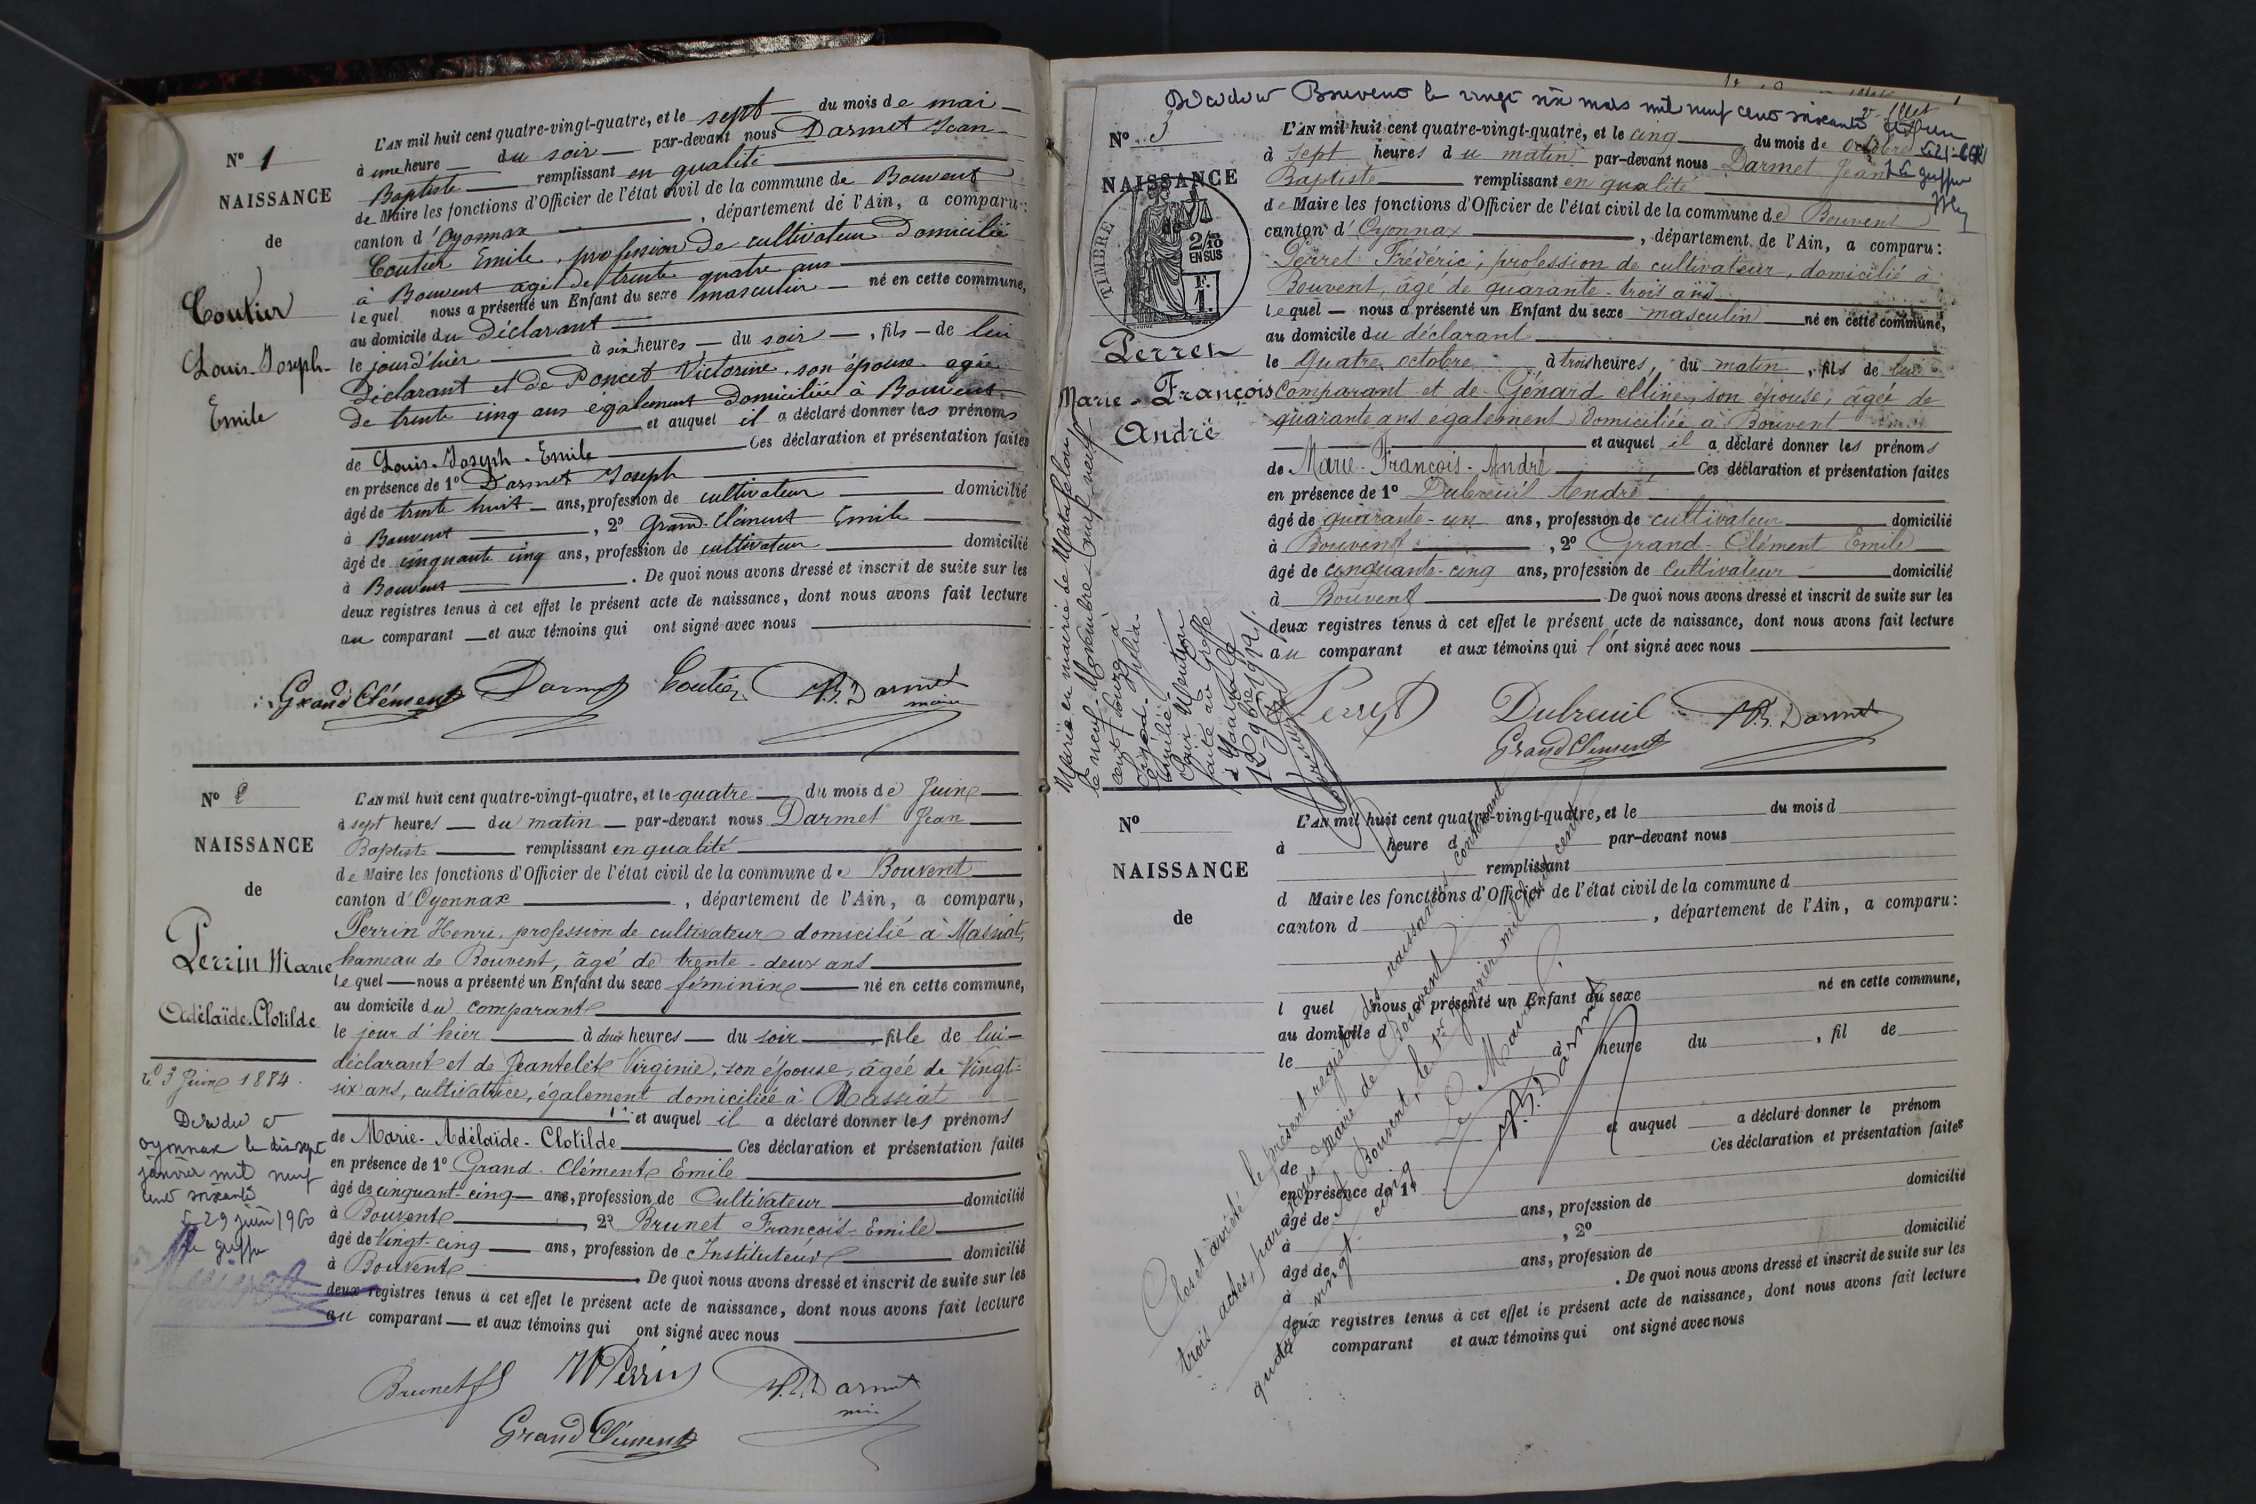 N° 1
NAISSANCE
de
Coutier
Louis-Joseph-
Emile
L'AN mil huit cent quatre-vingt-quatre, et le sept du mois de mai
à une heure du soir par-devant nous Darmet Jean
Baptiste remplissant en qualité
de Maire les fonctions d'Officier de l'état civil de la commune de Bouvent
canton d'Oyonnax , département de l'Ain, a comparu:
Coutier Emile, profession de cultivateur domicilié
à Bouvent agé de trente quatre ans
lequel nous a présenté un Enfant du sexe masculin né en cette commune,
au domicile du Déclarant
le jourd'hier à six heures du soir , fils de lui
Déclarant et de Poncet Victorine, son épouse agée
de trente cinq ans également domiciliée à Bouvent
et auquel il a déclaré donner les prénoms
de Louis-Joseph-Emile Ces déclaration et présentation faites
en présence de 1° Darmet Joseph
âgé de trente huit ans, profession de cultivateur domicilié
à Bouvent , 2° Grand-Clément Emile
âgé de cinquante cinq ans, profession de cultivateur domicilié
à Bouvent . De quoi nous avons dressé et inscrit de suite sur les
deux registres tenus à cet effet le présent acte de naissance, dont nous avons fait lecture
au comparant et aux témoins qui ont signé avec nous
Grand Clément Darmet Coutier J.B. Darmet
maire
N° 2
NAISSANCE
de
Perrin Marie
Adélaïde-Clotilde
le 3 Juin 1884.
Décédée à
Oyonnax le dix sept
janvier mil neuf
cent soixante
le 29 juin 1960
Le greffier
L'AN mil huit cent quatre-vingt-quatre, et le quatre du mois de Juin
à sept heures du matin par-devant nous Darmet Jean
Baptiste remplissant en qualité
de Maire les fonctions d'Officier de l'état civil de la commune de Bouvent
canton d'Oyonnax , département de l'Ain, a comparu,
Perrin Henri, profession de cultivateur domicilié à Massiat,
hameau de Bouvent, âgé de trente-deux ans
lequel nous a présenté un Enfant du sexe féminin né en cette commune,
au domicile du comparant
le jour d'hier à deux heures du soir , fille de lui
déclarant et de Jeantelet Virginie, son épouse, âgée de vingt-
six ans, cultivatrice, également domiciliée à Massiat
et auquel il a déclaré donner les prénoms
de Marie-Adélaïde-Clotilde Ces déclaration et présentation faites
en présence de 1° Grand-Clément Emile
âgé de cinquant-cinq ans, profession de Cultivateur domicilié
à Bouvent , 2° Brunet François-Emile
âgé de vingt-cinq ans, profession de Instituteur domicilié
à Bouvent . De quoi nous avons dressé et inscrit de suite sur les
deux registres tenus à cet effet le présent acte de naissance, dont nous avons fait lecture
au comparant et aux témoins qui ont signé avec nous
Brunet H Perrin J.B. Darmet
Grand Clément
Décédé à Bouvent le vingt six mars mil neuf cent soixante et un
Le greffier
N° 3
NAISSANCE
TIMBRE
2/10
EN SUS
F.
1.
Perret
Marie-François
André
Marié en mairie de Matafelon
le neuf Novembre mil neuf
cent douze à
Mention
faite au Greffe
L'AN mil huit cent quatre-vingt-quatre, et le cinq du mois de octobre
à sept heures du matin par-devant nous Darmet Jean
Baptiste remplissant en qualité
de Maire les fonctions d'Officier de l'état civil de la commune de Bouvent
canton d'Oyonnax , département de l'Ain, a comparu:
Perret Frédéric, profession de cultivateur, domicilié à
Bouvent, âgé de quarante-trois ans
lequel nous a présenté un Enfant du sexe masculin né en cette commune,
au domicile du déclarant
le quatre octobre à trois heures, du matin , fils de lui
Comparant et de Génard Elline, son épouse, âgée de
quarante ans egalement domiciliée à Bouvent
et auquel il a déclaré donner les prénoms
de Marie-François-André Ces déclaration et présentation faites
en présence de 1° Dubreuil André
âgé de quarante-un ans, profession de cultivateur domicilié
à Bouvent , 2° Grand-Clément Emile
âgé de cinquante-cinq ans, profession de Cultivateur domicilié
à Bouvent De quoi nous avons dressé et inscrit de suite sur les
deux registres tenus à cet effet le présent acte de naissance, dont nous avons fait lecture
au comparant et aux témoins qui l'ont signé avec nous
Perret Dubreuil J.B. Darmet
Grand Clément
N°
NAISSANCE
de
L'AN mil huit cent quatre-vingt-quatre, et le du mois d
à heure d par-devant nous
remplissant
d Maire les fonctions d'Officier de l'état civil de la commune d
canton d , département de l'Ain, a comparu:
l quel nous a présenté un Enfant du sexe né en cette commune,
au domicile d
le à heure du , fil de
et auquel a déclaré donner le prénom
de Ces déclaration et présentation faites
en présence de 1°
âgé de ans, profession de domicilié
à , 2°
âgé de ans, profession de domicilié
à . De quoi nous avons dressé et inscrit de suite sur les
deux registres tenus à cet effet le présent acte de naissance, dont nous avons fait lecture
comparant et aux témoins qui ont signé avec nous
Clos et arrêté le présent registre des naissances contenant
trois actes, par nous Maire de Bouvent
A Bouvent, le 1er Janvier mil huit cent
quatre vingt cinq
Le Maire
J.B. Darmet